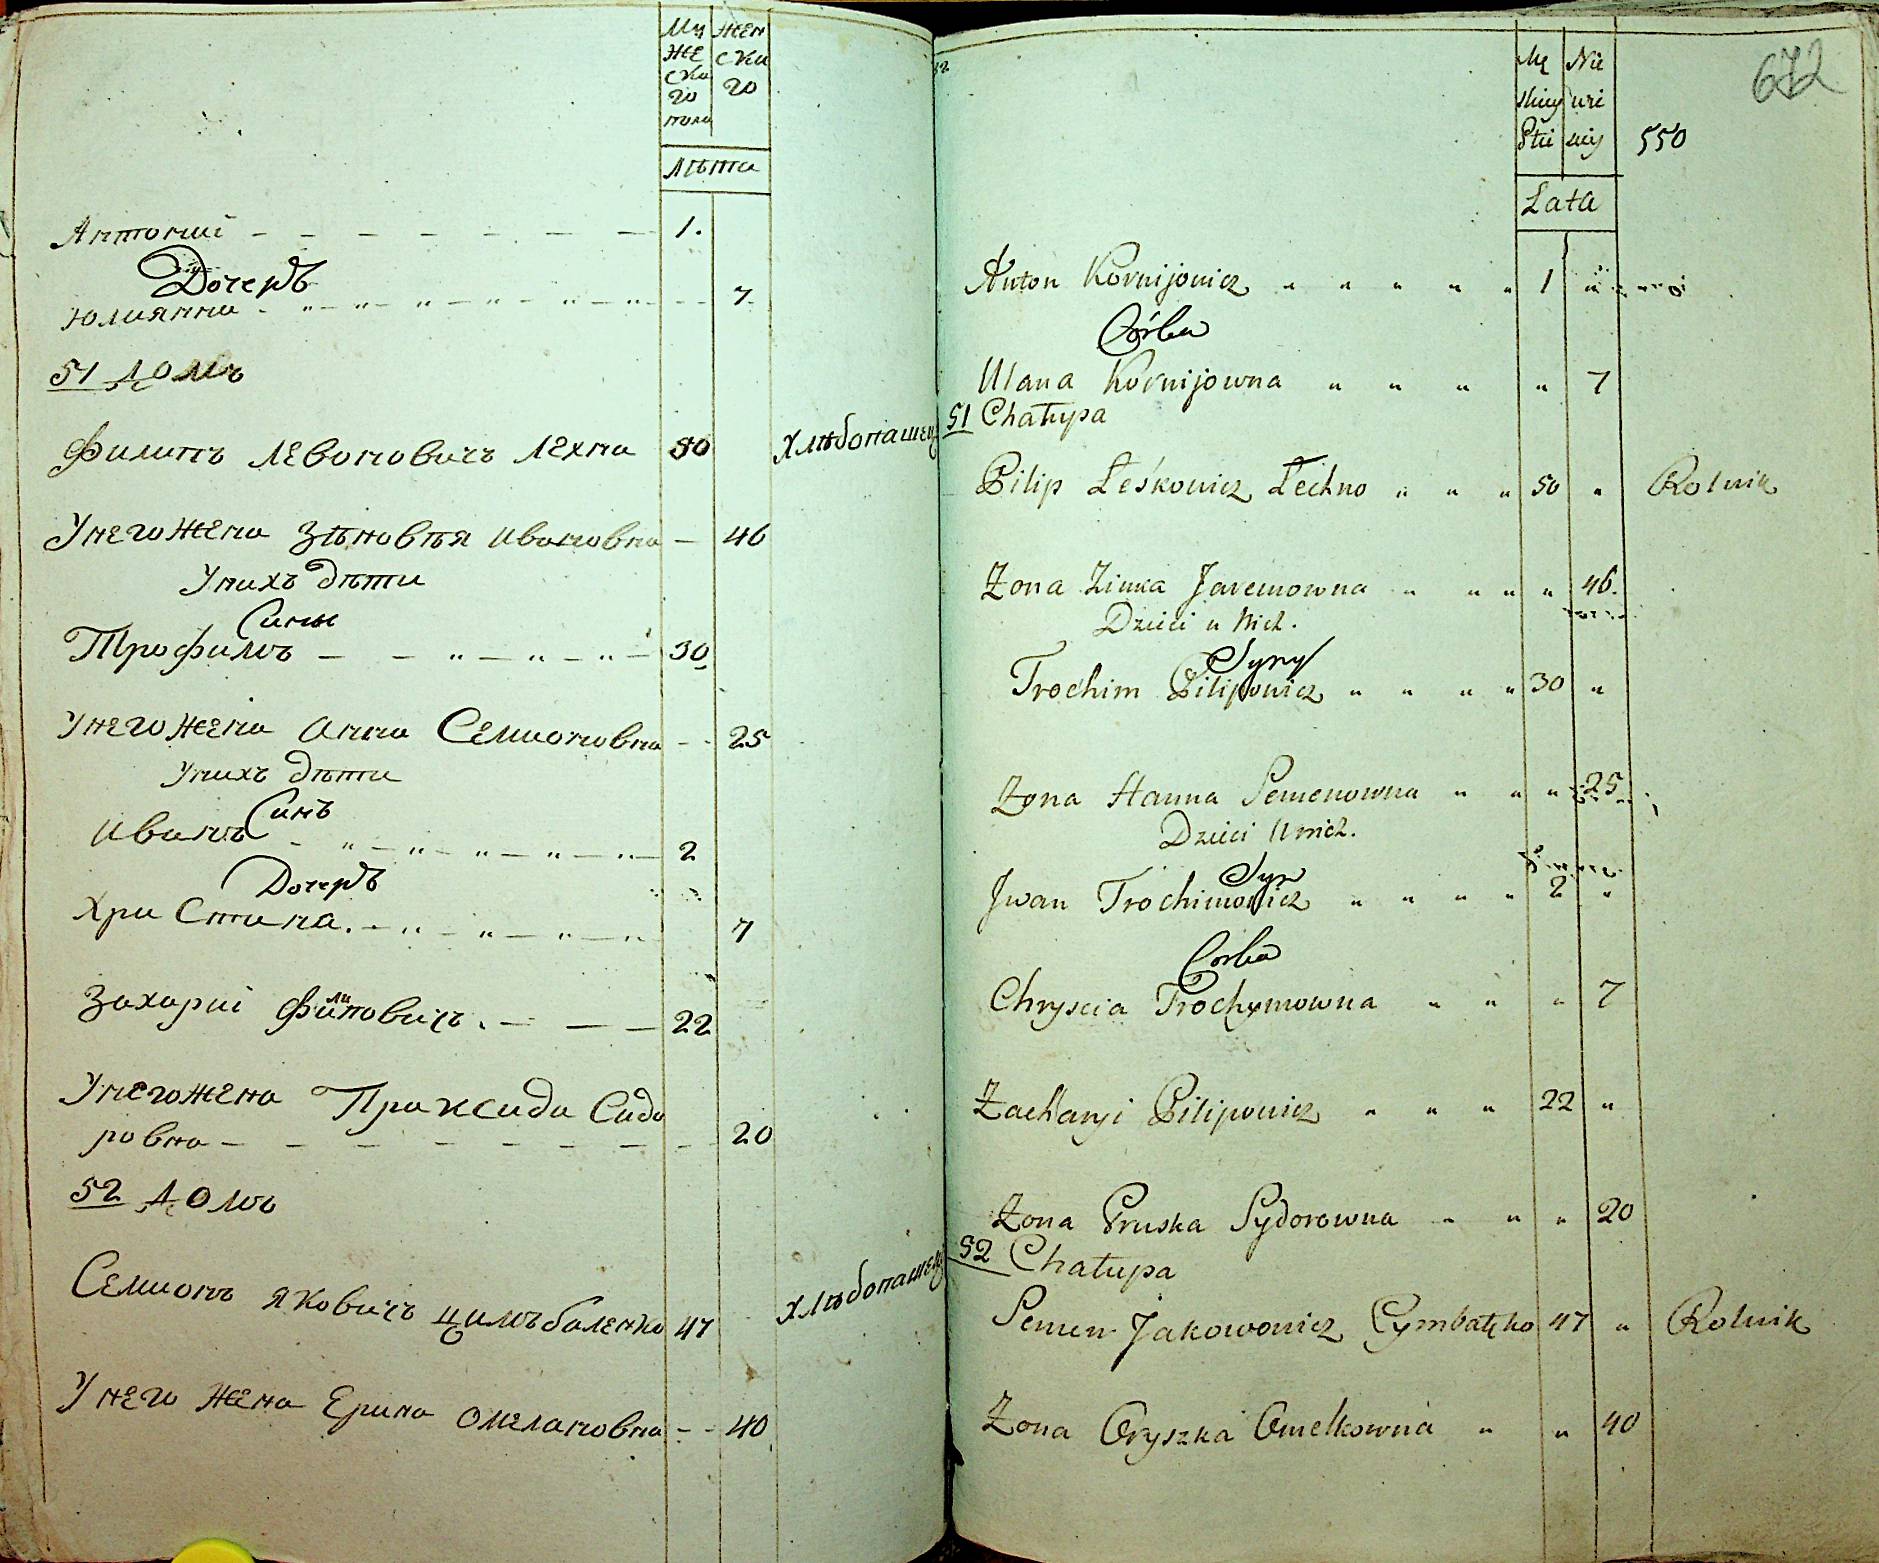 Му Жен
же ска
ска го
го
пола
Лѣта
Антоній 1.
Дочерь
Юлиянна 7
51 Домъ
Филипъ Левоновичъ Лехно 50 Хлѣбопашец
У него жена Зѣновѣя Ивановна 46
У нихъ дѣти
Сины
Трофимъ 30
У него жена Анна Семионовна 25
У нихъ дѣти
Синъ
Иванъ 2
Дочерь
Христина. 7
Захарий Филиповичъ. 22
У него жена Праксида Сидо
ровна 20
52 Домъ
Семионъ Яковичъ Цимъбаленко 47 Хлѣбопашец
У него жена Ерина Омеляновна 40
672
Mę Nie
skiey wie
Płci sciej
550
Lata
Anton Kornijowicz " " " " " 1 "
Córka
Ulana Kornijowna " " " " 7
51 Chałupa
Pilip Leśkowicz Łechno " " " 50 " Rolnik
Żona Zinka Jaremowna " " " " 46.
Dzieci u Nich.
Syny
Trochim Pilipowicz " " " " 30 "
Żona Hanna Semenowna " " " 25
Dzieci U nich.
Syn
Jwan Trochimowicz " " " " 2 "
Corka
Chryscia Trochymowna " " " 7
Zacharyi Pilipowicz " " " 22 "
Żona Pruska Sydorowna " " " 20
52 Chałupa
Semen Jakowowicz Cymbałko 47 " Rolnik
Żona Oryszka Omelkowna " " 40